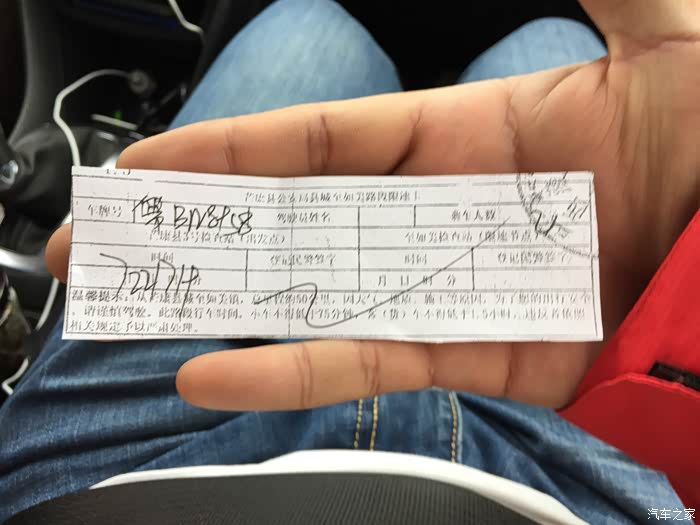 产康县公安局县城至如美路段限速单
车牌号 驾驶员姓名 乘车人数
产康县3号检查站（出发点） 至如美检查站（限速节点）
时间 登记民警签字 时间 登记民警签字
分 月 日 时 分
温馨提示：从产康县城至如美镇，总里程约50公里，因天气、地质、施工等原因，为了您的出行安全
，请谨慎驾驶。此路段行车时间，小车不得低于75分钟，客（货）车不得低于1.5小时，违反者依照
相关规定予以严肃处理。
汽车之家